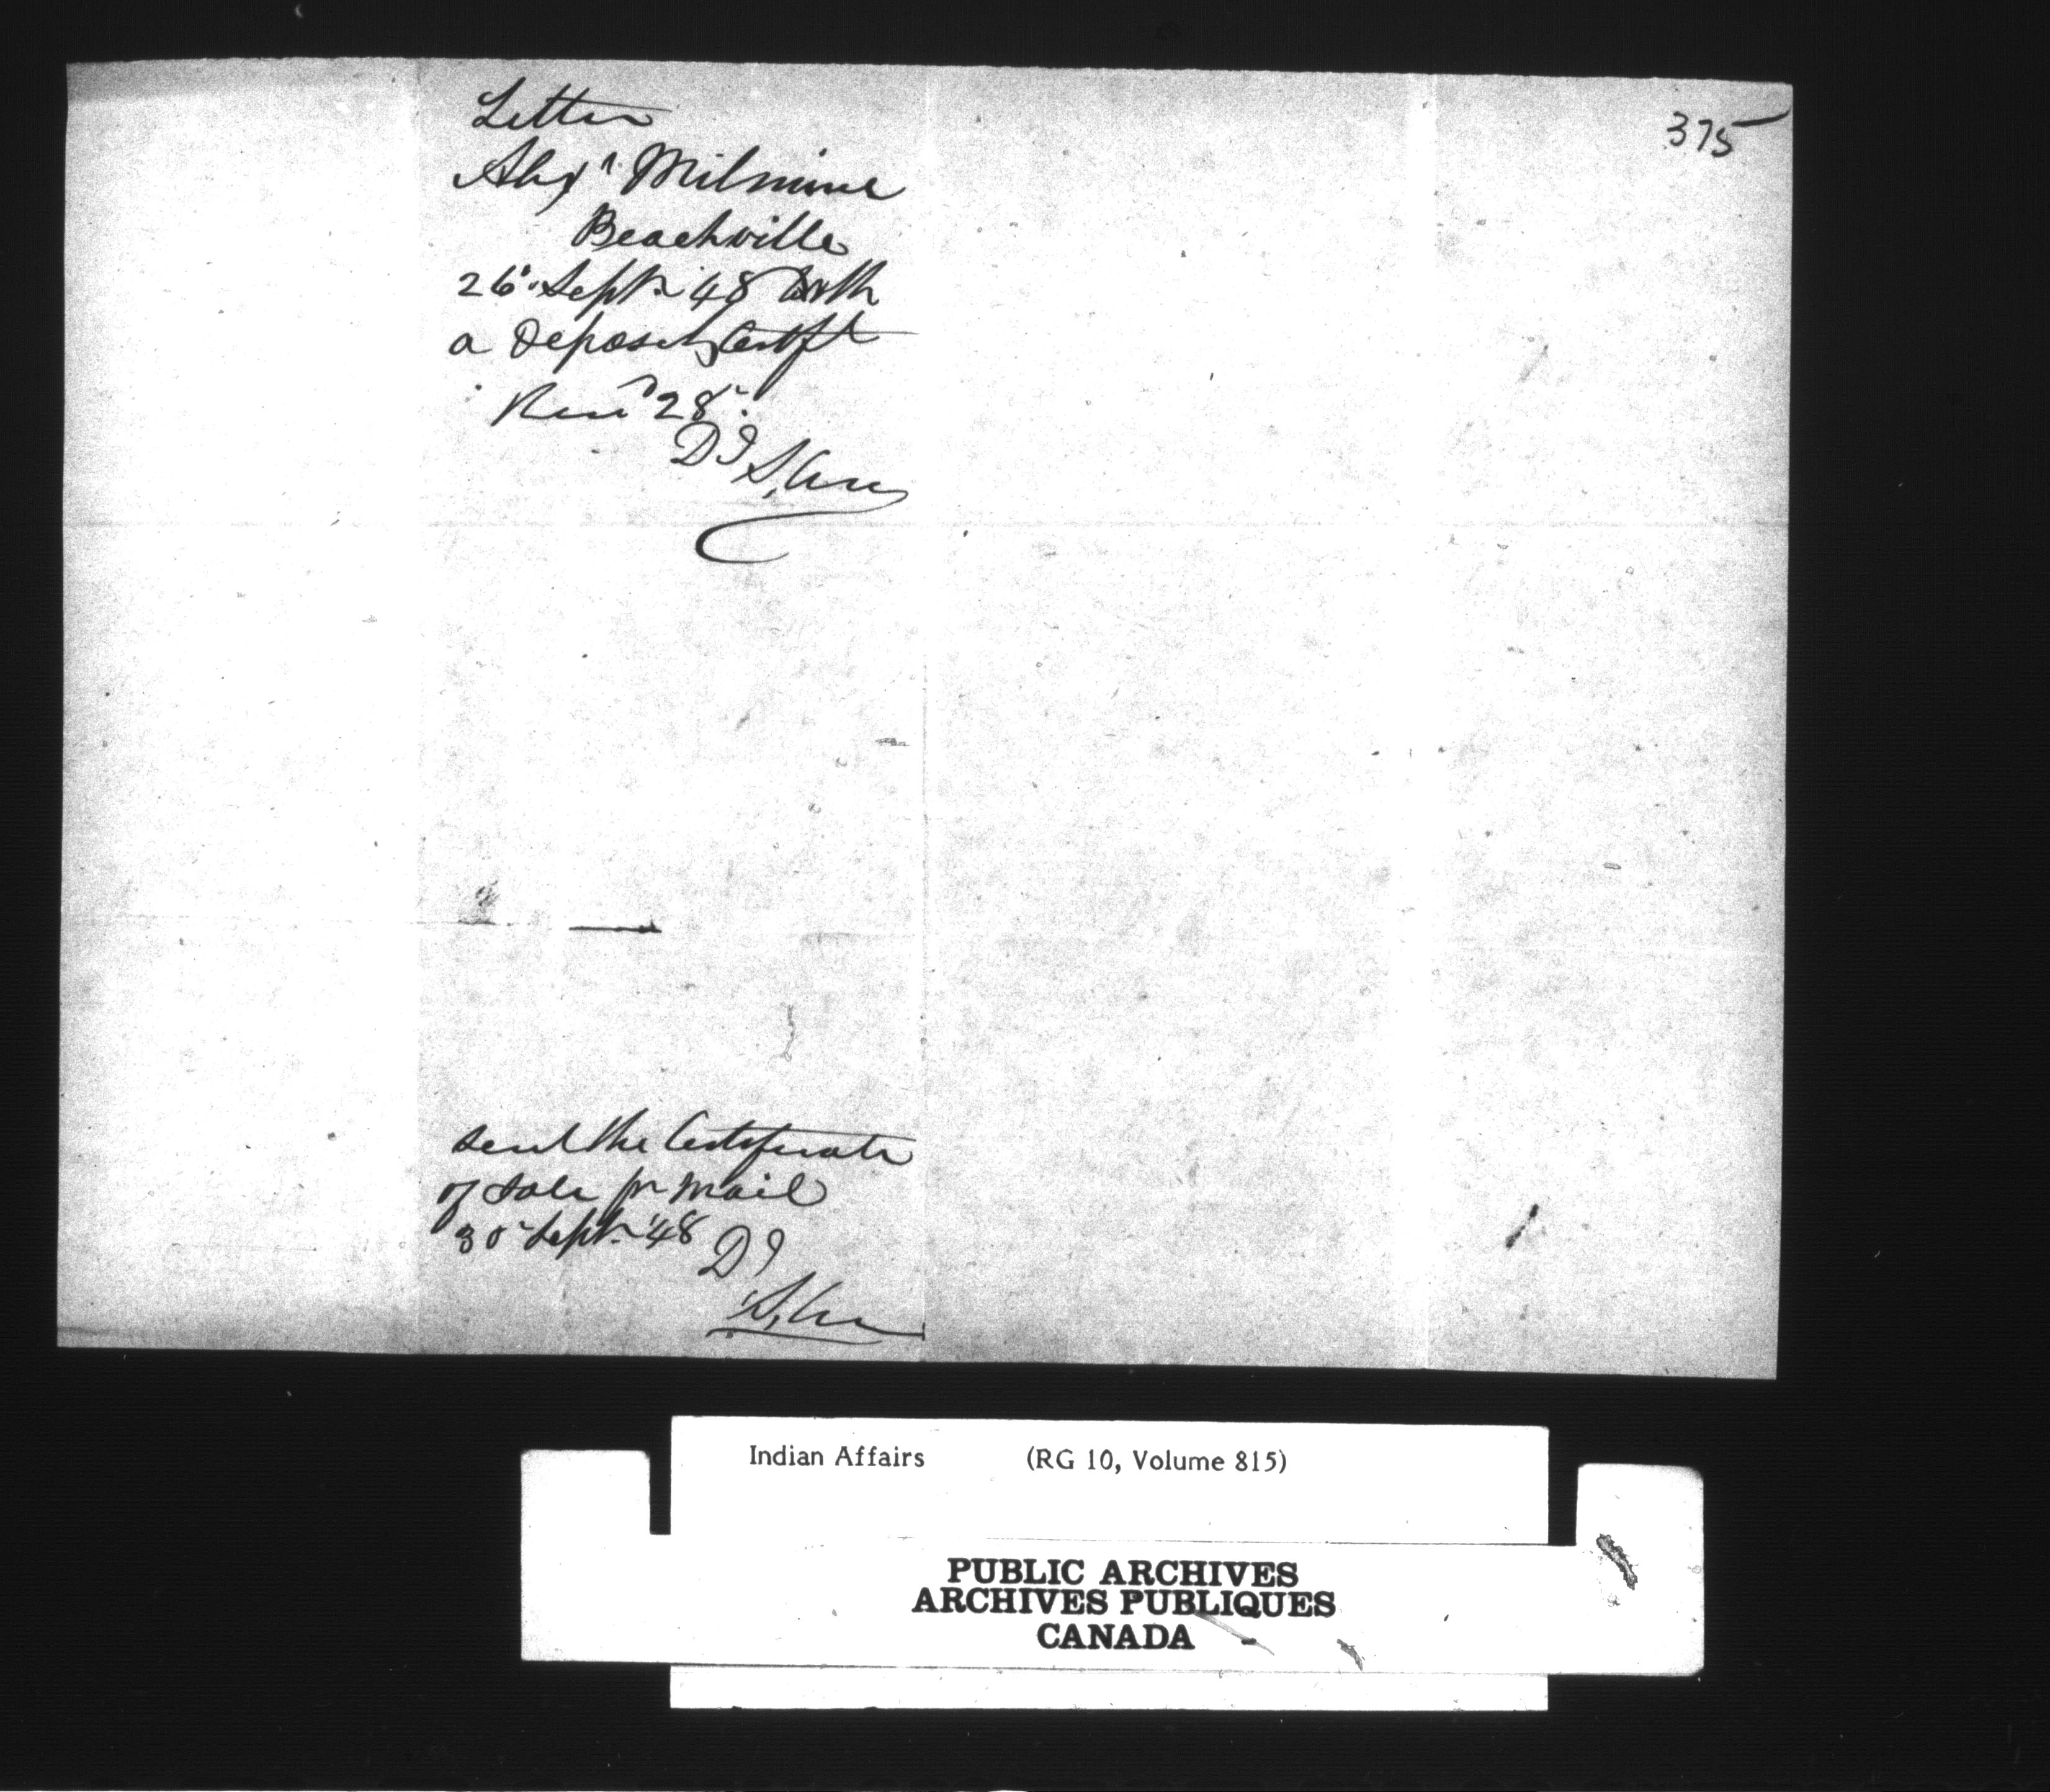 375
Letter
Alexr Milmine
Beachville
26. Sept. 48 with
a Deposit Certft
Recd 28.
D T
sent the Certificate
of Sale pr Mail
30 Sept. '48 D T
Indian Affairs (RG 10, Volume 815)
PUBLIC ARCHIVES
ARCHIVES PUBLIQUES
CANADA